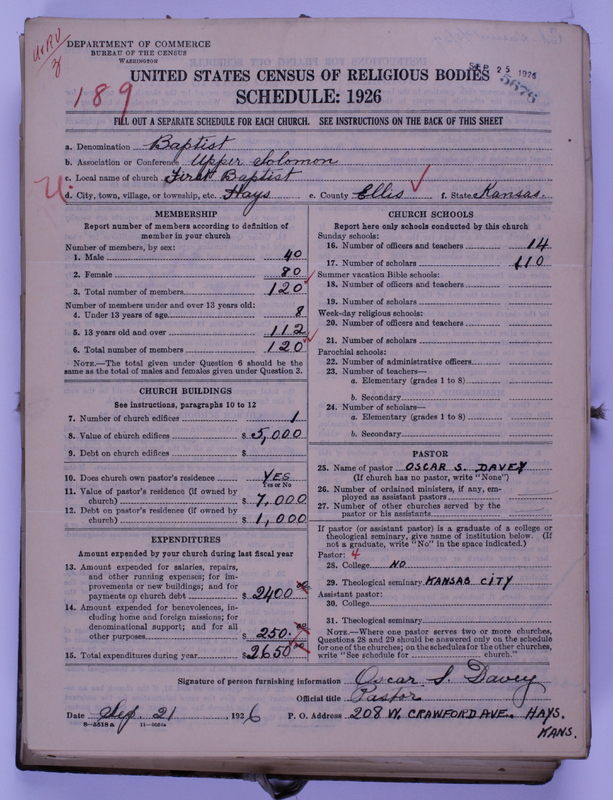 DEPARTMENT OF COMMERCE
BUREAU OF THE CENSUS
WASHINGTON
SEP 25 1926
5676
UNITED STATES CENSUS OF RELIGIOUS BODIES
189
SCHEDULE: 1926
FILL OUT A SEPARATE SCHEDULE FOR EACH CHURCH. SEE INSTRUCTIONS ON THE BACK OF THIS SHEET
a. Denomination Baptist
b. Association or Conference Upper Solomon
c. Local name of church First Baptist
d. City, town, village, or township, etc. Hays e. County Ellis f. State Kansas.
MEMBERSHIP
Report number of members according to definition of
member in your church
Number of members, by sex:
1. Male 40
2. Female 80
3. Total number of members 120
Number of members under and over 13 years old:
4. Under 13 years of age 8
5. 13 years old and over 112
6. Total number of members 120
NOTE.—The total given under Question 6 should be the
same as the total of males and females given under Question 3.
CHURCH BUILDINGS
See instructions, paragraphs 10 to 12
7. Number of church edifices 1
8. Value of church edifices $5,000
9. Debt on church edifices $
10. Does church own pastor's residence YES
Yes or No
11. Value of pastor's residence (if owned by
church) $7,000
12. Debt on pastor's residence (if owned by
church) $1,000
EXPENDITURES
Amount expended by your church during last fiscal year
13. Amount expended for salaries, repairs,
and other running expenses; for im-
provements or new buildings; and for
payments on church debt $2400
14. Amount expended for benevolences, in-
cluding home and foreign missions; for
denominational support; and for all
other purposes $250.
15. Total expenditures during year $2650
CHURCH SCHOOLS
Report here only schools conducted by this church
Sunday schools:
16. Number of officers and teachers 14
17. Number of scholars 110
Summer vacation Bible schools:
18. Number of officers and teachers
19. Number of scholars
Week-day religious schools:
20. Number of officers and teachers
21. Number of scholars
Parochial schools:
22. Number of administrative officers
23. Number of teachers—
a. Elementary (grades 1 to 8)
b. Secondary
24. Number of scholars—
a. Elementary (grades 1 to 8)
b. Secondary
PASTOR
25. Name of pastor OSCAR S. DAVEY
(If church has no pastor, write "None")
26. Number of ordained ministers, if any, em-
ployed as assistant pastors
27. Number of other churches served by the
pastor or his assistants
If pastor (or assistant pastor) is a graduate of a college or
theological seminary, give name of institution below. (If
not a graduate, write "No" in the space indicated.)
Pastor: 4
28. College NO
29. Theological seminary KANSAS CITY
Assistant pastor:
30. College
31. Theological seminary
NOTE.—Where one pastor serves two or more churches,
Questions 28 and 29 should be answered only on the schedule
for one of the churches; on the schedules for the other churches,
write "See schedule for church."
Signature of person furnishing information Oscar S. Davey
Official title Pastor
Date Sep. 21, 1926 P. O. Address 208 W. CRAWFORD AVE. HAYS.
KANS.